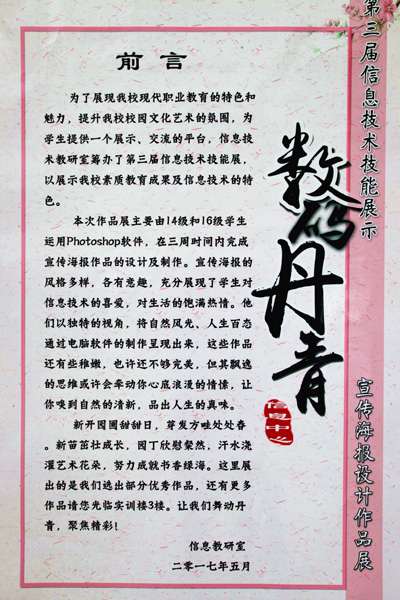 前言
为了展现我校现代职业教育的特色和
魅力，提升我校校园文化艺术的氛围，为
学生提供一个展示、交流的平台，信息技
术教研室筹办了第三届信息技术技能展，
以展示我校素质教育成果及信息技术的特
色。
本次作品展主要由14级和16级学生
运用Photoshop软件，在三周时间内完成
宣传海报作品的设计及制作。宣传海报的
风格多样，各有意趣，充分展现了学生对
信息技术的喜爱，对生活的饱满热情。他
们以独特的视角，将自然风光、人生百态
通过电脑软件的制作呈现出来，这些作品
还有些稚嫩，也许还不够完美，但其飘逸
的思维或许会牵动你心底浪漫的情愫，让
你嗅到自然的清新，品出人生的真味。
新开园圃甜甜日，芽发方畦处处春
。新苗茁壮成长，园丁欣慰粲然，汗水浇
灌艺术花朵，努力成就书香绿海。这里展
出的是我们选出部分优秀作品，还有更多
作品请您光临实训楼3楼。让我们舞动丹
青，聚焦精彩！
信息教研室
二零一七年五月
数码丹青
第三届信息技术技能展示
宣传海报设计作品展